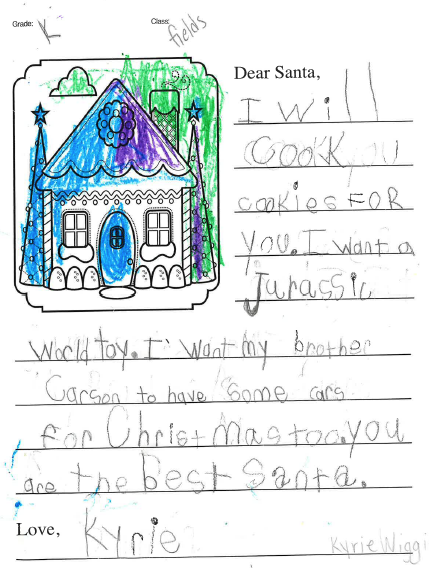 Grade: K
Class: fields
Dear Santa,
I will
Cook
cookies FOR
you. I want a
Jurassic
World toy. I want my brother
Carson to have some cars
for Christmas too. you
are the best Santa.
Love, Kyrie
Kyrie Wiggi